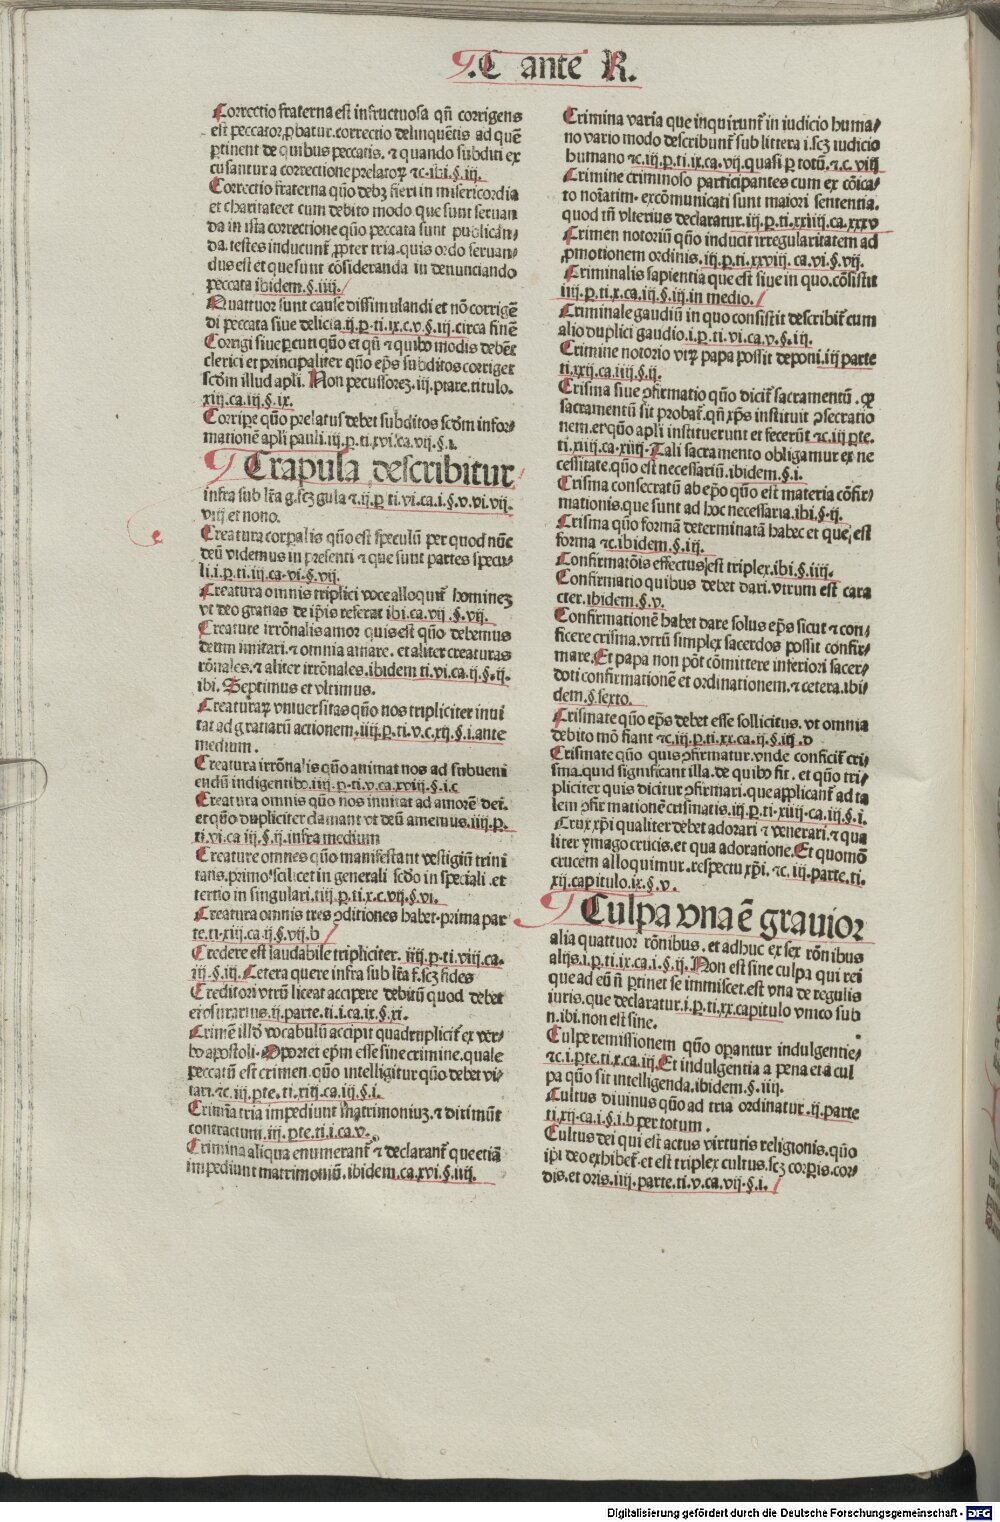 .C ante R.
Correctio fraterna est infructuosa qñ corrigens
est peccator, ꝓbatur. correctio delinquētis ad quē
ꝑtinent de quibus peccatis. ⁊ quando subditi ex
cusantur a correctione prelatoꝝ ⁊c. ibi. §. iij.
Correctio fraterna quō debꝫ fieri in misericordia
et charitate et cum debito modo que sunt seruan
da in ista correctione quō peccata sunt publicān/
da. testes inducunt̄ ꝓpter tria. quis ordo seruan/
dus est et que sunt cōsideranda in denunciando
peccata ibidem. §. iiij.
Quattuor sunt cause dissimulandi et nō corrigē
di peccata siue delicta. ij. p. ti. ix. c. v. §. iij. circa finē
Corrigi siue ꝑcuti quō et qñ ⁊ quibꝰ modis debēt
clerici et principaliter quō ep̄s subditos corriget
scd̄m illud apli. Non pecussorez. iij. ptare. titulo.
xiij. ca. iij. §. ix.
Corripe quō prelatus debet subditos scd̄m infor/
mationē apli pauli. iij. p. ti. xvi. ca. vij. §. i.
Crapula describitur
infra sub lr̄a g. scꝫ gula ⁊. ij. p. ti. vi. ca. i. §. v. vi. vij.
viij et nono.
Creatura corꝑalis quō est speculū per quod nūc
deū videmus in presenti ⁊ que sunt partes specu/
li. i. p. ti. iij. ca. vi. §. vij.
Creatura omnis triplici voce alloquit̄ hominez
vt deo gratias de ip̄is referat ibi. ca. vij. §. vij.
Creature irrōnalis amor quis est quō debemus
deum imitari. ⁊ omnia amare. et aliter creaturas
rōnales. ⁊ aliter irrōnales. ibidem ti. vi. ca. ij. §. ij.
ibi. Septimus et vltimus.
Creaturaꝝ vniuersitas quō nos tripliciter inui
tat ad gratiarū actionem. iiij. p. ti. v. c. xij. §. i. ante
medium.
Creatura irrōnalis quō animat nos ad subueni
endū indigentibꝰ. iiij. p. ti. v. ca. xviij. §. i. c
Creatura omnis quō nos inuitat ad amorē dei.
et quō dupliciter clamant vt deū amemus. iiij. p.
ti. vi. ca iij. §. ij. infra medium
Creature omnes quō manifestant vestigiū trini
tatis. primo scilicet in generali scdo in speciali. et
tertio in singulari. iiij. p. ti. x. c. vij. §. vi.
Creatura omnis tres ꝯditiones habet. prima par
te. ti. xiij. ca. ij. §. vij. b
Credere est laudabile tripliciter. iiij. p. ti. viij. ca.
iij. §. iij. Cetera quere infra sub lr̄a f. scꝫ fides
Creditori vtrū liceat accipere debitū quod debet
ei vsurarius. ij. parte. ti. i. ca. ix. §. xi.
Crimē illd̄ vocabulū accipit quadruplicit̄ ex ver/
bo apostoli. Oportet ep̄m esse sine crimine. quale
peccatū est crimen. quō intelligitur quō debet vi/
tari. ⁊c. iij. pte. ti. xiij. ca. iij. §. i.
Crimīa tria impediunt matrimoniuz. ⁊ dirimūt
contractum. iij. pte. ti. i. ca. v.
Crimina aliqua enumerant̄ ⁊ declarant̄ que etiā
impediunt matrimoniū. ibidem. ca. xvi. §. iiij.
Crimina varia que inquirunt̄ in iudicio huma/
no vario modo describunt̄ sub littera i. scꝫ iudicio
humano ⁊c. iij. p. ti. ix. ca. vij. quasi p totū. ⁊. c. viij
Crimine criminoso participantes cum ex cōica/
to noīatim. excōmunicati sunt maiori sententia.
quod tn̄ vlterius declaratur. iij. p. ti. xxiiij. ca. xxxv
Crimen notoriū quō inducit irregularitatem ad
ꝓmotionem ordinis. iij. p. ti. xxviij. ca. vi. §. vij.
Criminalis sapientia que est siue in quo. cōsistit
iiij. p. ti. x. ca. iij. §. iij. in medio.
Criminale gaudiū in quo consistit describit̄ cum
alio duplici gaudio. i. p. ti. vi. ca. v. §. iij.
Crimine notorio vtꝝ papa possit deponi. iij parte
ti. xxij. ca. iiij. §. ij.
Crisma siue ꝯfirmatio quō dicit̄ sacramentū. ꝙ
sacramentū sit probat̄. qñ xp̄s instituit ꝯsecratio
nem. et quō apli instituerunt et fecerūt ⁊c. iij pte.
ti. xiiij. ca. xiiij. Tali sacramento obligamur ex ne
cessitate. quō est necessariū. ibidem. §. i.
Crisma consecratū ab ep̄o quō est materia cōfir/
mationis. que sunt ad hoc necessaria. ibi. §. ij.
Crisma quō formā determinatā habet et que est
forma ⁊c. ibidem. §. iij.
Confirmatōis effectus est triplex. ibi. §. iiij.
Confirmatio quibus debet dari. vtrum est cara
cter. ibidem. §. v.
Confirmationē habet dare solus ep̄s sicut ⁊ con/
ficere crisma. vtrū simplex sacerdos possit confir/
mare. Et papa non pōt cōmittere inferiori sacer/
doti confirmationē et ordinationem. ⁊ cetera. ibi/
dem. §. sexto.
Crismate quō ep̄s debet esse sollicitus. vt omnia
debito mō fiant ⁊c. iij. p. ti. xx. ca. ij. §. iij. d
Crismate quō quis ꝯfirmatur. vnde conficit̄ cri/
sma. quid significant illa. de quibꝰ fit. et quō tri/
pliciter quis dicitur ꝯfirmari. que applicant̄ ad ta
lem ꝯfirmationē crismatis. iij. p. ti. xiiij. ca. iij. §. i.
Crux xp̄i qualiter debet adorari ⁊ venerari. ⁊ qua
liter ymago crucis. et qua adoratione. Et quomō
crucem alloquimur. respectu xp̄i. ⁊c. iij. parte. ti.
xij. capitulo. ix. §. v.
Culpa vna ē grauior
alia quattuor rōnibus. et adhuc ex sex rōnibus
alijs. i. p. ti. ix. ca. i. §. ij. Non est sine culpa qui rei
que ad eū ñ ꝑtinet se immiscet. est vna de regulis
iuris. que declaratur. i. p. ti. xx. capitulo vnico sub
n. ibi. non est sine.
Culpe remissionem quō oꝑantur indulgentie/
⁊c. i. pte. ti. x. ca. iij. Et indulgentia a pena et a cul
pa quō sit intelligenda. ibidem. §. iiij.
Cultus diuinus quō ad tria ordinatur. ij. parte
ti. xij. ca. i. §. i. b per totum.
Cultus dei qui est actus virtutis religionis. quō
ip̄i deo exhibet̄. et est triplex cultus. scꝫ corꝑis. cor/
dis. et oris. iiij. parte. ti. v. ca. vij. §. i.
Digitalisierung gefördert durch die Deutsche Forschungsgemeinschaft - DFG